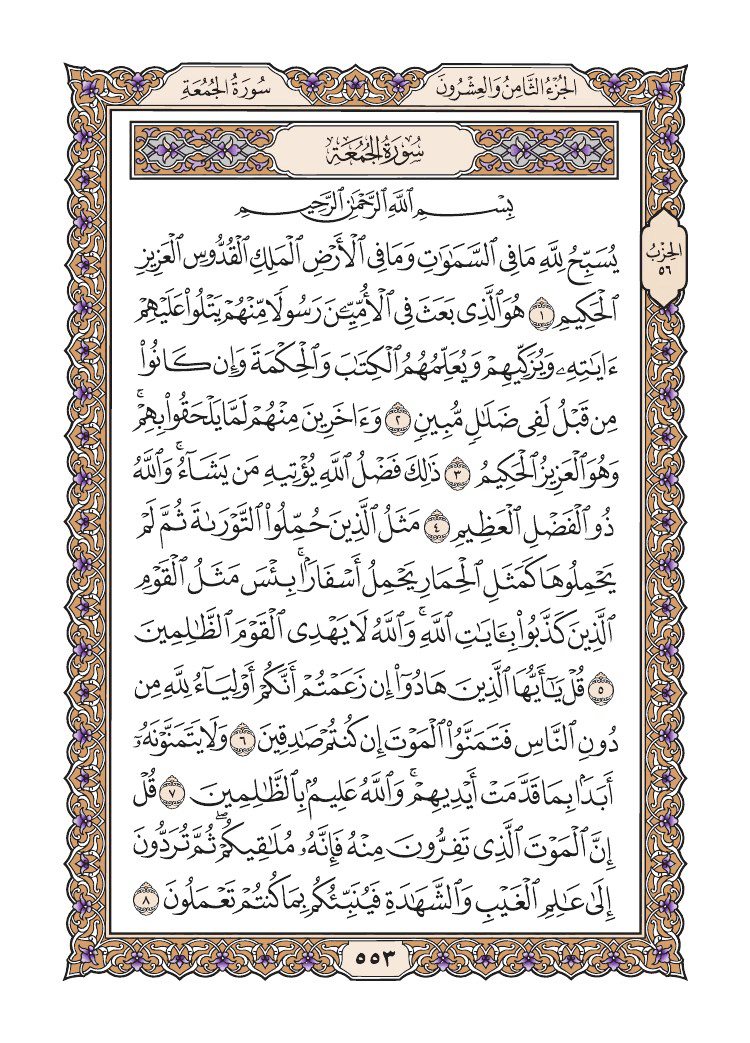 الجُزْءُ الثَّامِنُ وَالعِشْرُونَ
سُورَةُ الجُمُعَةِ
سُورَةُ الجُمُعَةِ
بِسْمِ ٱللَّهِ ٱلرَّحْمَٰنِ ٱلرَّحِيمِ
يُسَبِّحُ لِلَّهِ مَا فِى ٱلسَّمَٰوَٰتِ وَمَا فِى ٱلْأَرْضِ ٱلْمَلِكِ ٱلْقُدُّوسِ ٱلْعَزِيزِ
الحِزْبُ
٥٦
ٱلْحَكِيمِ ١ هُوَ ٱلَّذِى بَعَثَ فِى ٱلْأُمِّيِّـۧنَ رَسُولًا مِّنْهُمْ يَتْلُوا۟ عَلَيْهِمْ
ءَايَٰتِهِۦ وَيُزَكِّيهِمْ وَيُعَلِّمُهُمُ ٱلْكِتَٰبَ وَٱلْحِكْمَةَ وَإِن كَانُوا۟
مِن قَبْلُ لَفِى ضَلَٰلٍ مُّبِينٍ ٢ وَءَاخَرِينَ مِنْهُمْ لَمَّا يَلْحَقُوا۟ بِهِمْ ۚ
وَهُوَ ٱلْعَزِيزُ ٱلْحَكِيمُ ٣ ذَٰلِكَ فَضْلُ ٱللَّهِ يُؤْتِيهِ مَن يَشَآءُ ۚ وَٱللَّهُ
ذُو ٱلْفَضْلِ ٱلْعَظِيمِ ٤ مَثَلُ ٱلَّذِينَ حُمِّلُوا۟ ٱلتَّوْرَىٰةَ ثُمَّ لَمْ
يَحْمِلُوهَا كَمَثَلِ ٱلْحِمَارِ يَحْمِلُ أَسْفَارًۢا ۚ بِئْسَ مَثَلُ ٱلْقَوْمِ
ٱلَّذِينَ كَذَّبُوا۟ بِـَٔايَٰتِ ٱللَّهِ ۚ وَٱللَّهُ لَا يَهْدِى ٱلْقَوْمَ ٱلظَّٰلِمِينَ
٥ قُلْ يَٰٓأَيُّهَا ٱلَّذِينَ هَادُوٓا۟ إِن زَعَمْتُمْ أَنَّكُمْ أَوْلِيَآءُ لِلَّهِ مِن
دُونِ ٱلنَّاسِ فَتَمَنَّوُا۟ ٱلْمَوْتَ إِن كُنتُمْ صَٰدِقِينَ ٦ وَلَا يَتَمَنَّوْنَهُۥٓ
أَبَدًۢا بِمَا قَدَّمَتْ أَيْدِيهِمْ ۚ وَٱللَّهُ عَلِيمٌۢ بِٱلظَّٰلِمِينَ ٧ قُلْ
إِنَّ ٱلْمَوْتَ ٱلَّذِى تَفِرُّونَ مِنْهُ فَإِنَّهُۥ مُلَٰقِيكُمْ ۖ ثُمَّ تُرَدُّونَ
إِلَىٰ عَٰلِمِ ٱلْغَيْبِ وَٱلشَّهَٰدَةِ فَيُنَبِّئُكُم بِمَا كُنتُمْ تَعْمَلُونَ ٨
٥٥٣